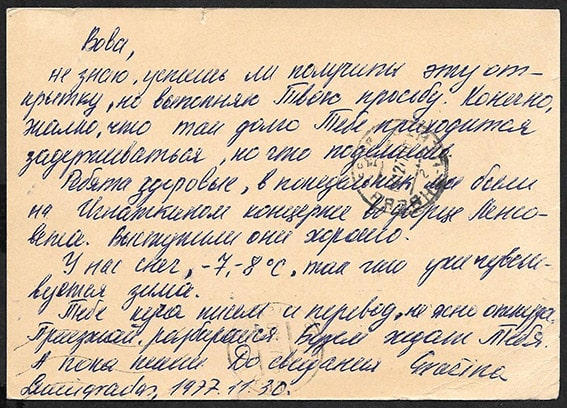 Вова,
не знаю, успеешь ли получить эту от-
крытку, но выполняю Твою просьбу. Конечно,
жалко, что так долго Тебе приходится
задерживаться, но что поделаешь.
Ребята здоровые, в понедельник были
на концерте во дворце Ленсо-
вета. Выступили они хорошо.
У нас снег, -7, -8°С, так что уже чувст-
вуется зима.
Тебе куча писем и перевод, не ясно откуда.
Приезжай, разберайся. Будем ждать Тебя.
А пока пиши До свидания
Leningradas, 1977.11.30.